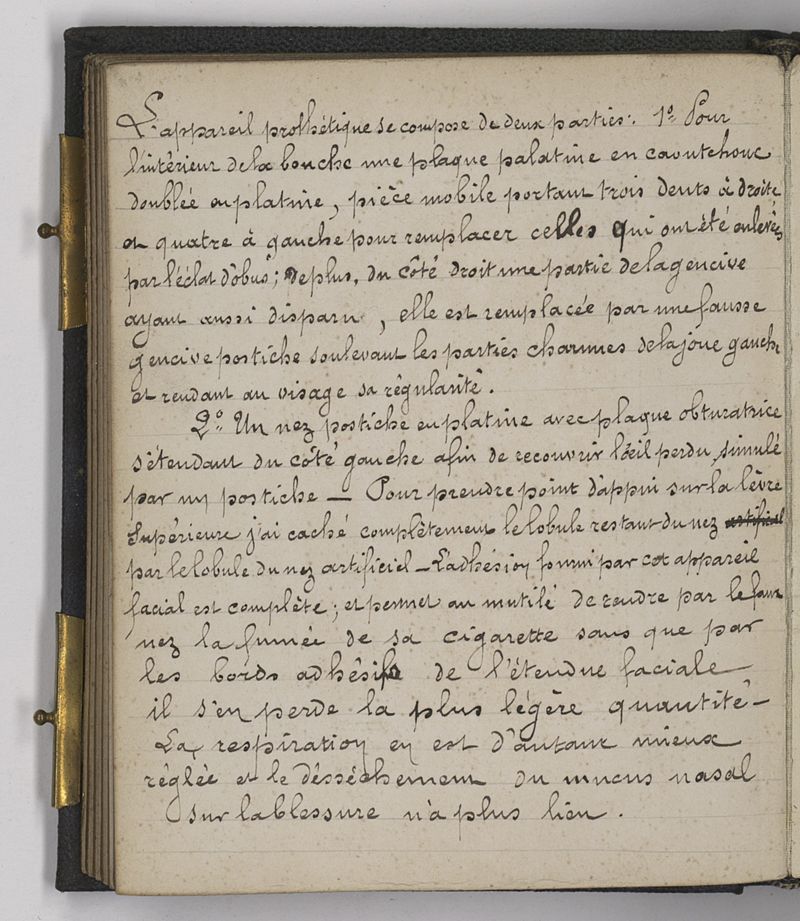 L'appareil prothétique se compose de deux parties. 1º Pour
l'intérieur de la bouche une plaque palatine en caoutchouc
doublée en platine, pièce mobile portant trois dents à droite
et quatre à gauche pour remplacer celles qui ont été enlevées
par l'éclat d'obus; de plus, du côté droit une partie de la gencive
ayant aussi disparu, elle est remplacée par une fausse
gencive postiche soulevant les parties charnues de la joue gauche
et rendant au visage sa régularité.
2º Un nez postiche en platine avec plaque obturatrice
s'étendant du côté gauche afin de recouvrir l'œil perdu, simulé
par un postiche — Pour prendre point d'appui sur la lèvre
Supérieure j'ai caché complètement le lobule restant du nez artificiel
par le lobule du nez artificiel — L'adhésion fourni par cet appareil
facial est complète; et permet au mutilé de rendre par le faux
nez la fumée de sa cigarette sans que par
les bords adhésifs de l'étendue faciale
il s'en perde la plus légère quantité —
La respiration en est d'autant mieux
réglée et le désséchement du mucus nasal
sur la blessure n'a plus lieu.